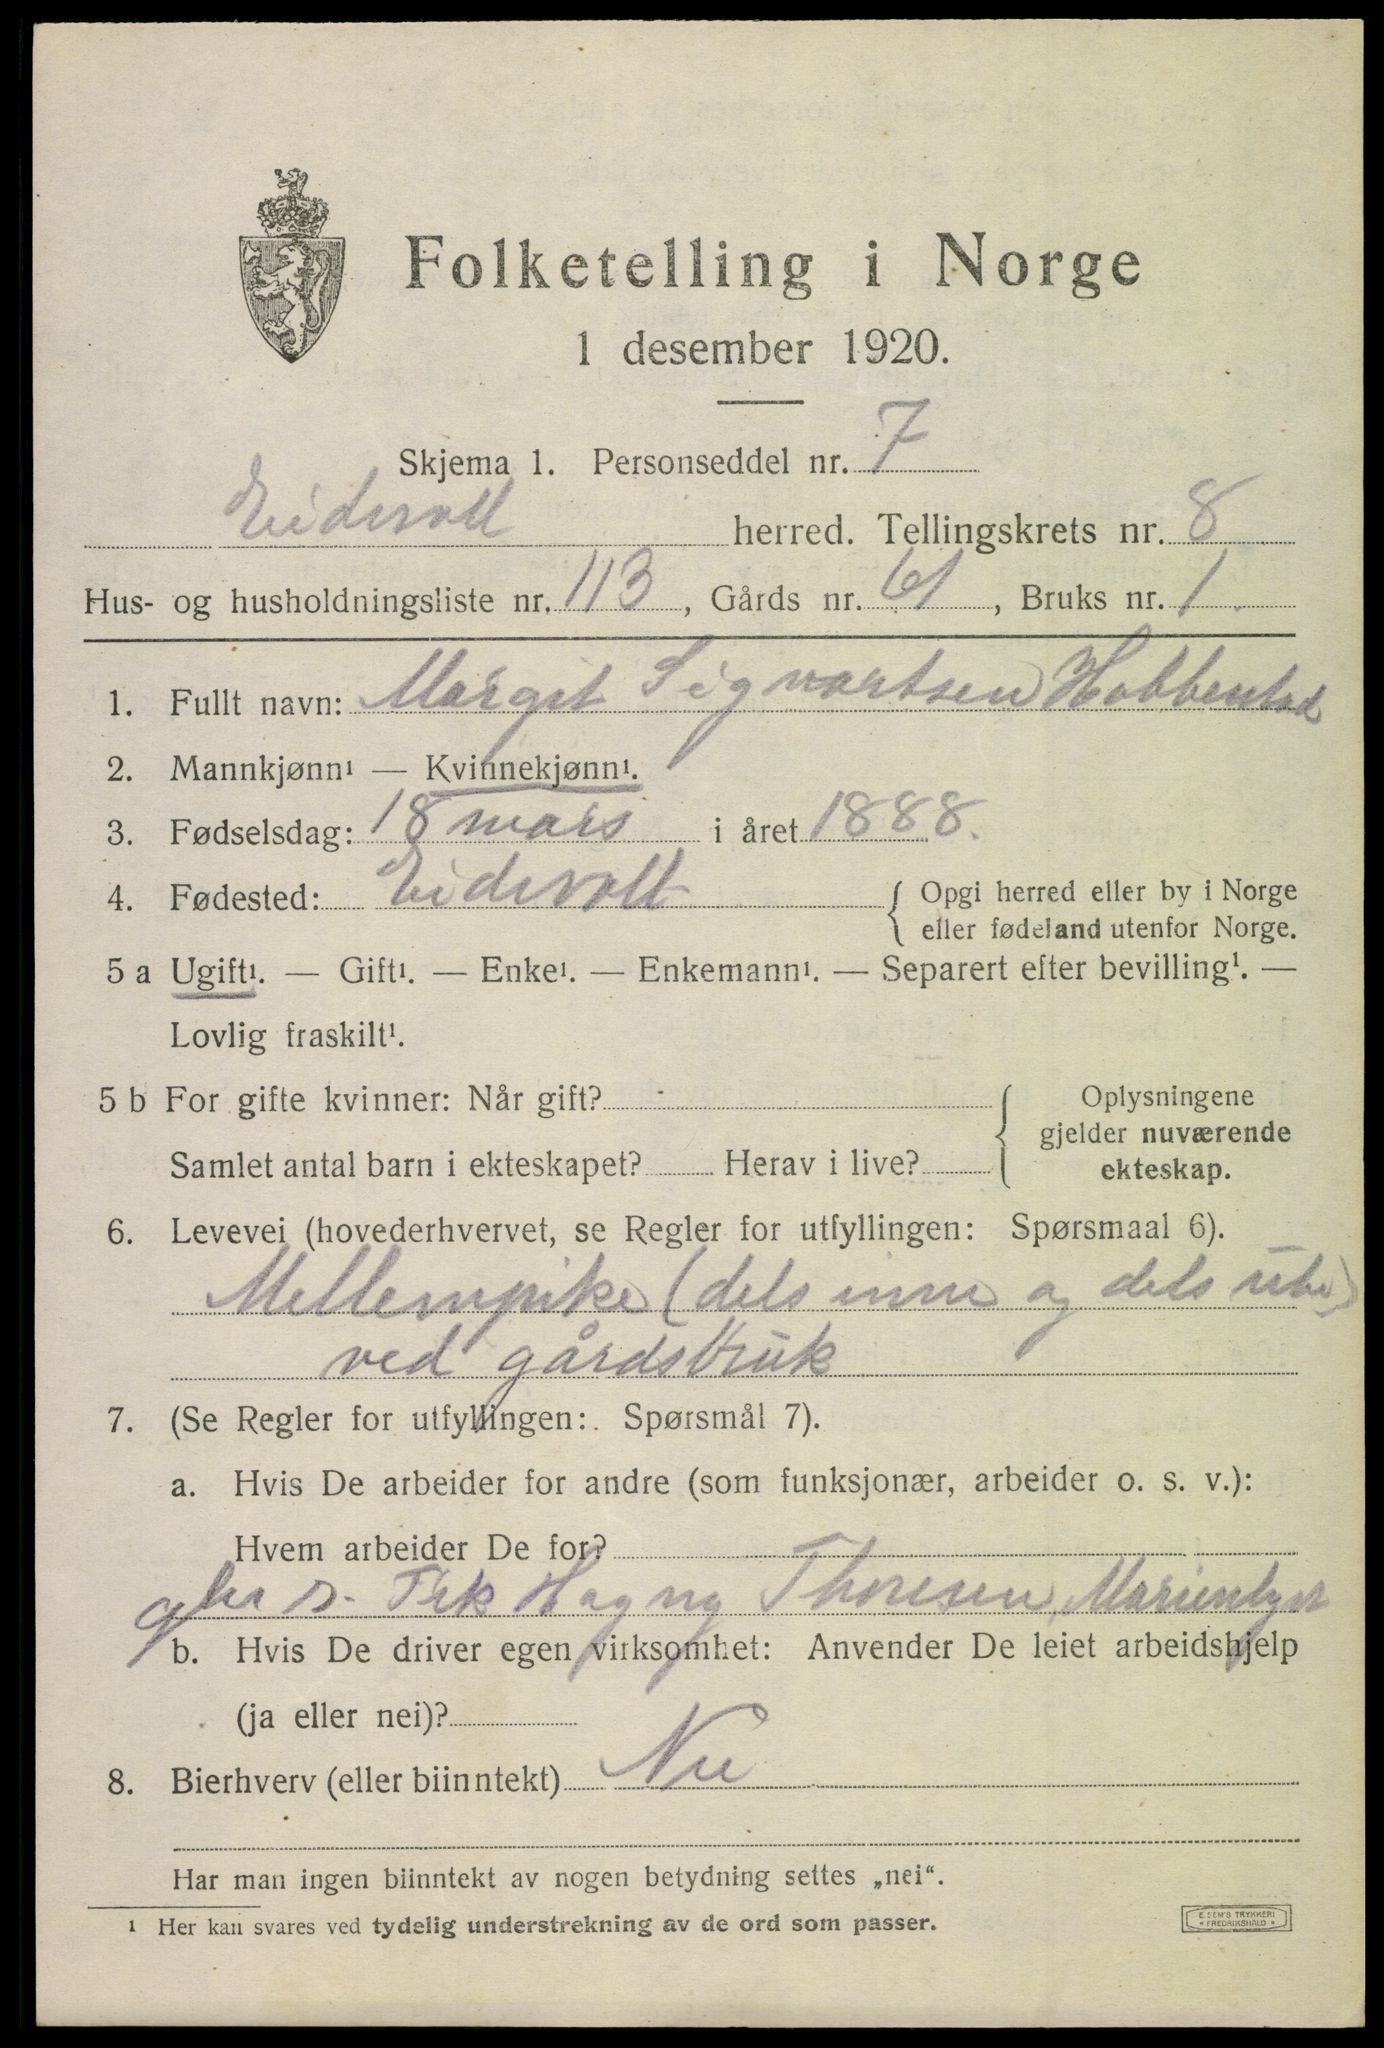 Folketelling i Norge
1 desember 1920.
Skjema 1. Personseddel nr. 7
Eidsvoll herred. Tellingskrets nr. 8
Hus- og husholdningsliste nr. 113, Gårds nr. 61, Bruks nr. 1.
1. Fullt navn: Margit Sigvartsen Habbenstad
2. Mannkjønn¹ — Kvinnekjønn¹.
3. Fødselsdag: 18 mars i året 1888.
4. Fødested: Eidsvoll { Opgi herred eller by i Norge
eller fødeland utenfor Norge.
5 a Ugift¹. — Gift¹. — Enke¹. — Enkemann¹. — Separert efter bevilling¹. —
Lovlig fraskilt¹.
5 b For gifte kvinner: Når gift? { Oplysningene
gjelder nuværende
Samlet antal barn i ekteskapet? Herav i live?
ekteskap.
6. Levevei (hovederhvervet, se Regler for utfyllingen: Spørsmaal 6).
Mellempike (dels inne og dels ute)
ved gårdsbruk
7. (Se Regler for utfyllingen: Spørsmål 7).
a. Hvis De arbeider for andre (som funksjonær, arbeider o. s. v.):
Hvem arbeider De for?
Thoresen, Marienlyst
b. Hvis De driver egen virksomhet: Anvender De leiet arbeidshjelp
(ja eller nei)?
8. Bierhverv (eller biinntekt) Nei
Har man ingen biinntekt av nogen betydning settes „nei“.
¹ Her kan svares ved tydelig understrekning av de ord som passer.
E. SEM'S TRYKKERI
* FREDRIKSHALD *